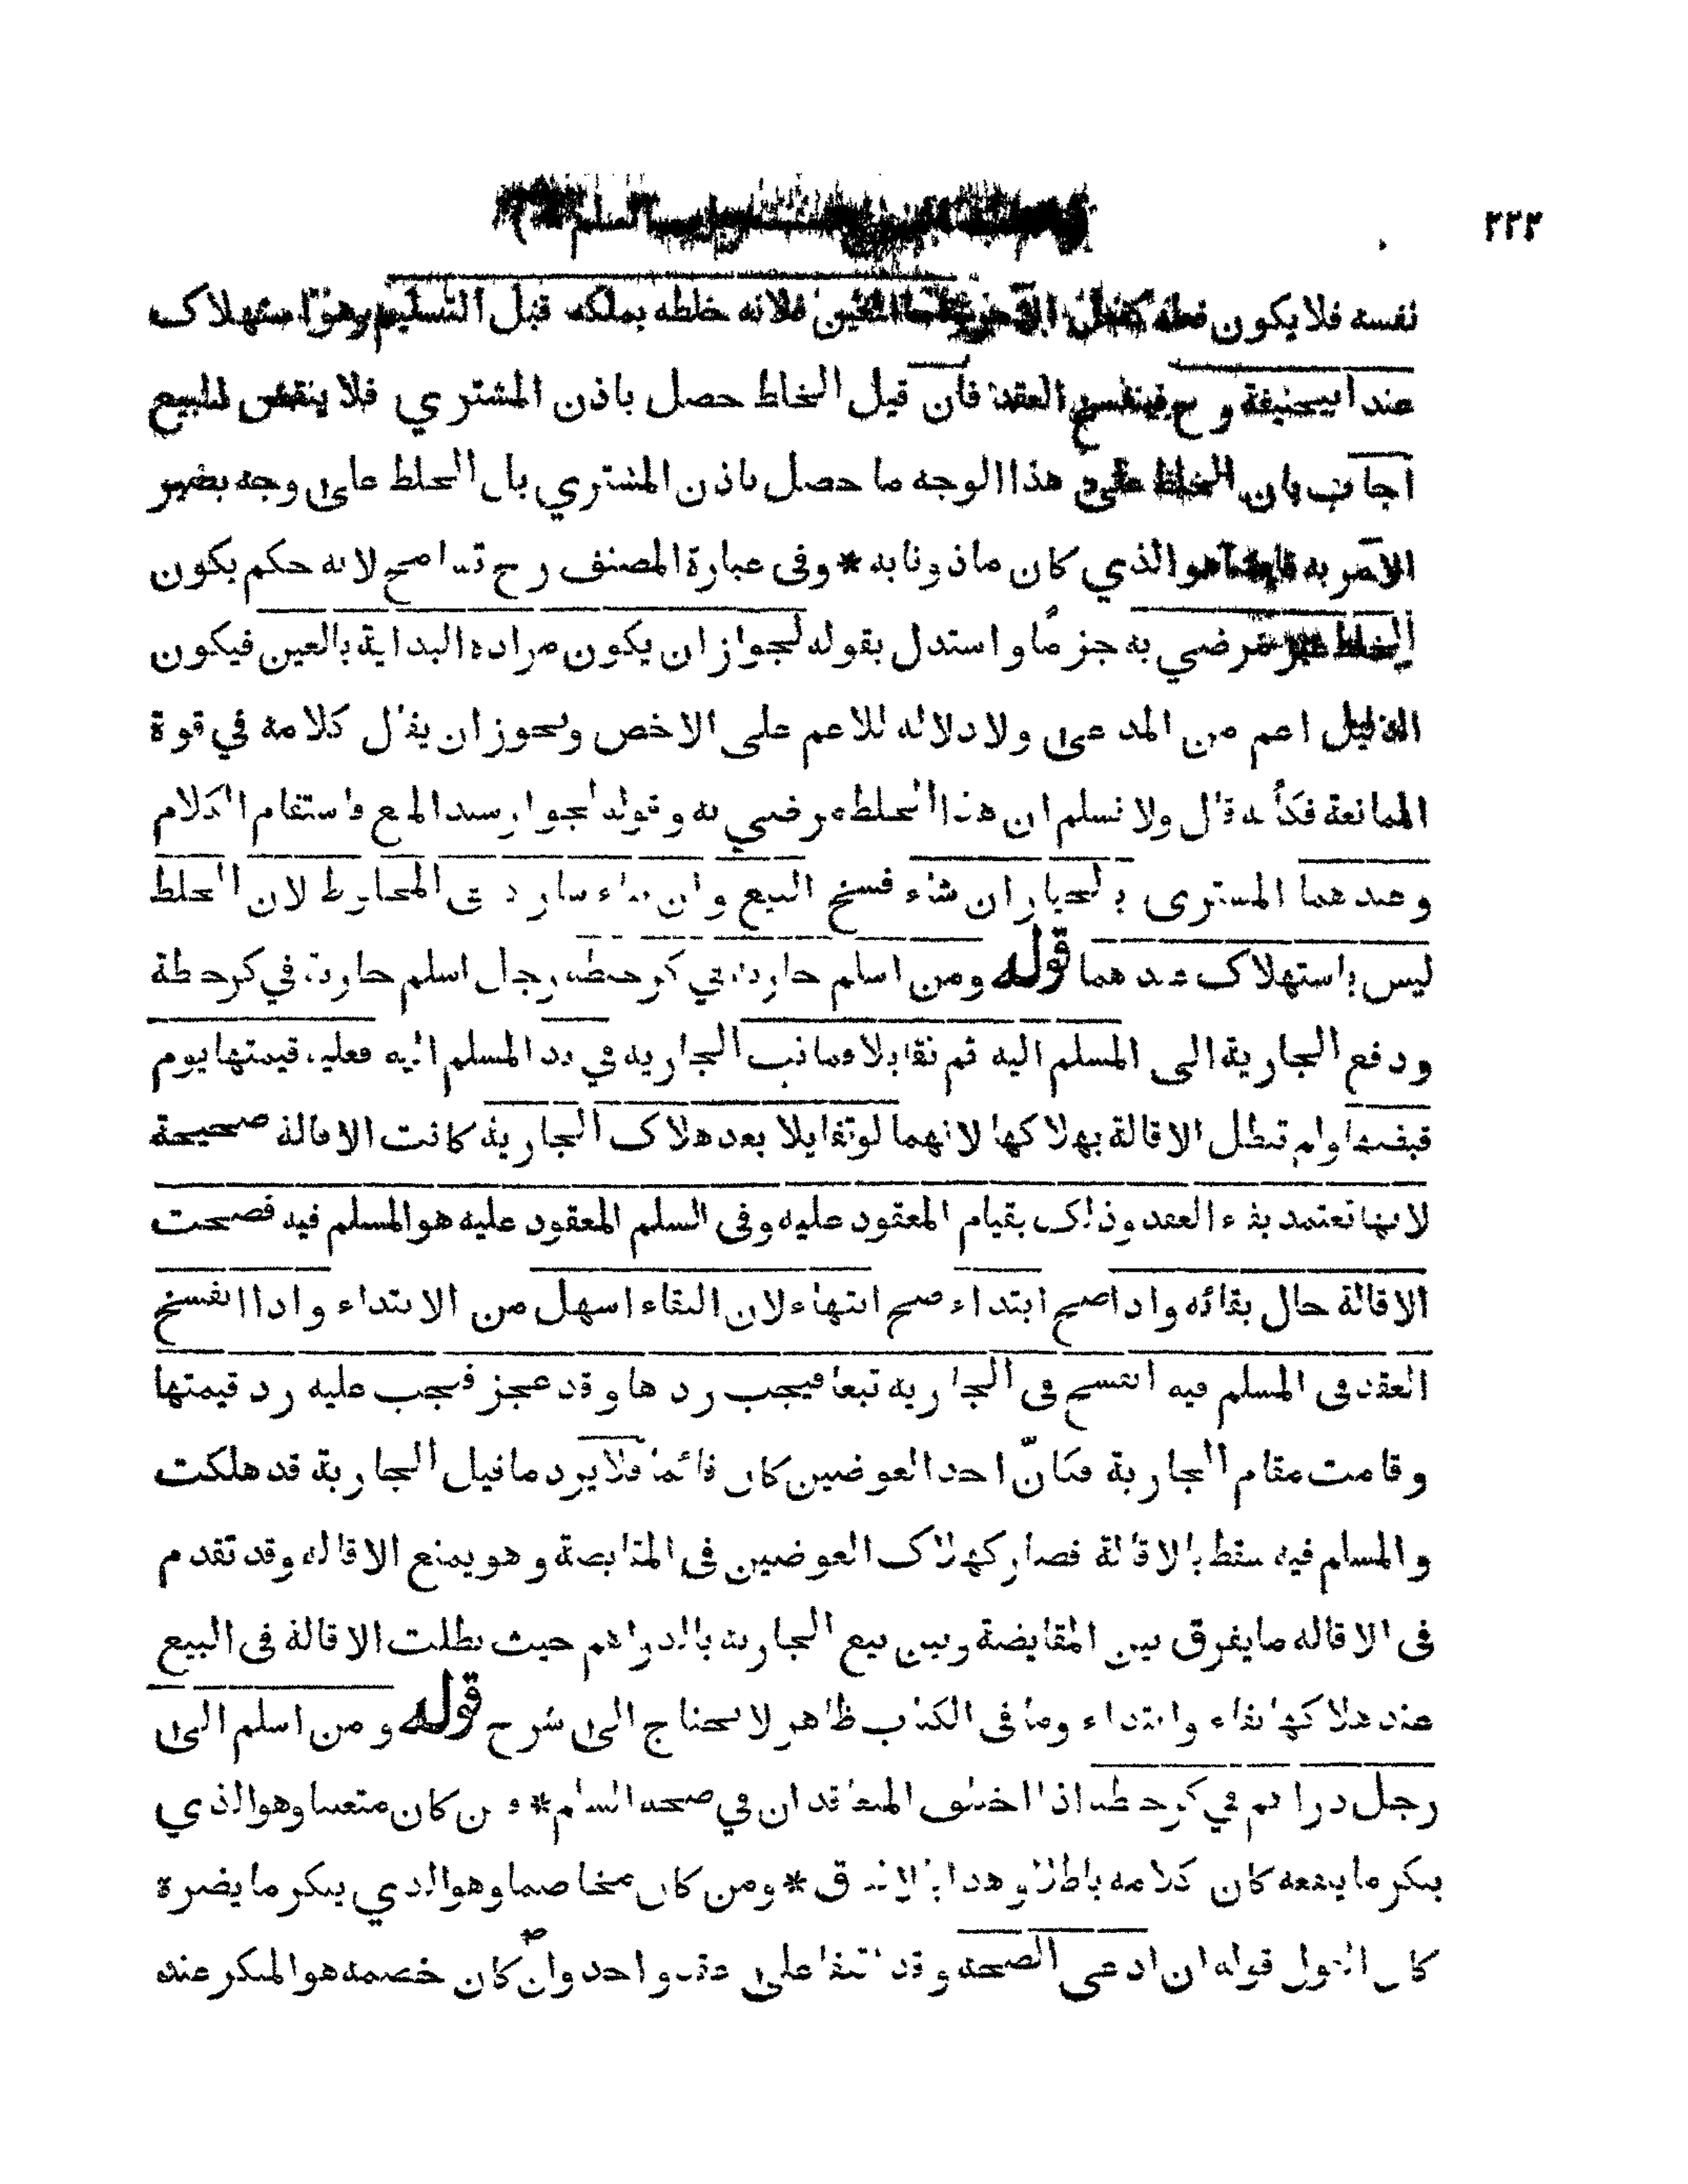 ٢٢٣
نفسه فلا يكون فعله كفعل الآخر اما العين فلانه خلطه بملكه قبل التسليم وهو استهلاك
عند ابيحنيفة رح فينفسخ العقد فان قيل الخلط حصل باذن المشتري فلا ينقض البيع
اجاب بان الخلط على هذا الوجه ما حصل باذن المشتري بل الخلط على وجه يصير
الآمر به قابضا هو الذي كان ماذونا به * وفى عبارة المصنف رح تسامح لانه حكم بكون
الخلط غير مرضي به جزمًا واستدل بقوله لجواز ان يكون مراده البداية بالعين فيكون
الدليل اعم من المدعى ولا دلالة للاعم على الاخص ويجوز ان يقال كلامه في قوة
الممانعة فكأنه قال ولا نسلم ان هذا الخلط مرضي به وقوله لجواز سند المنع فاستقام الكلام
وعندهما المشترى بالخيار ان شاء فسخ البيع وان شاء شاركه فى المخلوط لان الخلط
ليس باستهلاك عندهما قوله ومن اسلم جارية في كر حنطة رجل اسلم جارية في كر حنطة
ودفع الجارية الى المسلم اليه ثم تقايلا فماتت الجارية في يد المسلم اليه فعليه قيمتها يوم
قبضها ولم تبطل الاقالة بهلاكها لانهما لو تقايلا بعد هلاك الجارية كانت الاقالة صحيحة
لانها تعتمد بقاء العقد وذلك بقيام المعقود عليه وفى السلم المعقود عليه هو المسلم فيه فصحت
الاقالة حال بقائه واذا صح ابتداء صح انتهاء لان البقاء اسهل من الابتداء واذا انفسخ
العقد فى المسلم فيه انفسخ فى الجارية تبعا فيجب ردها وقد عجز فيجب عليه رد قيمتها
وقامت مقام الجارية فكانّ احد العوضين كان قائما فلا يرد ما قيل الجارية قد هلكت
والمسلم فيه سقط بالاقالة فصار كهلاك العوضين فى المقايضة وهو يمنع الاقالة وقد تقدم
فى الاقالة ما يفرق بين المقايضة وبين بيع الجارية بالدراهم حيث بطلت الاقالة فى البيع
عند هلاكها بقاء وابتداء وما فى الكتاب ظاهر لا يحتاج الى شرح قوله ومن اسلم الى
رجل دراهم في كر حنطة اذا اختلف المتعاقدان في صحة السلم * فمن كان متعنتا وهو الذي
ينكر ما ينفعه كان كلامه باطلا وهذا بالاتفاق * ومن كان مخاصما وهو الذي ينكر ما يضره
كان القول قوله ان ادعى الصحة وقد اتفقا على عقد واحد وان كان خصمه هو المنكر عنده